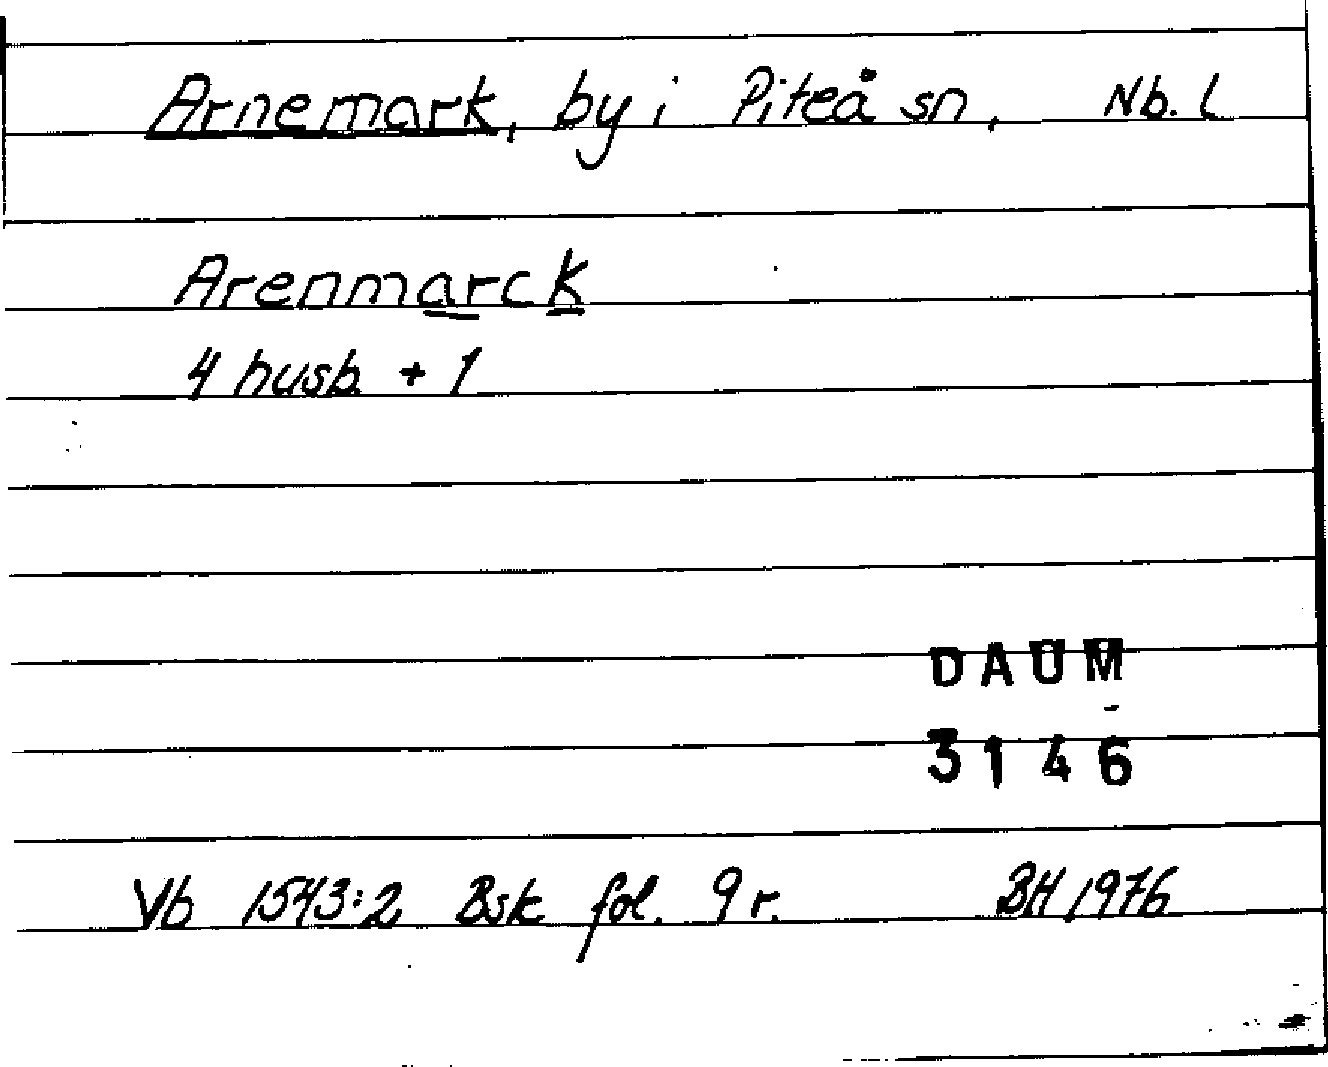 Arnemark, by i Piteå sn, Nb. L
Arenmarck
4 husb. + 1
DAUM
3146
Vb 1543:2 Bsk fol. 9 r. BH 1976